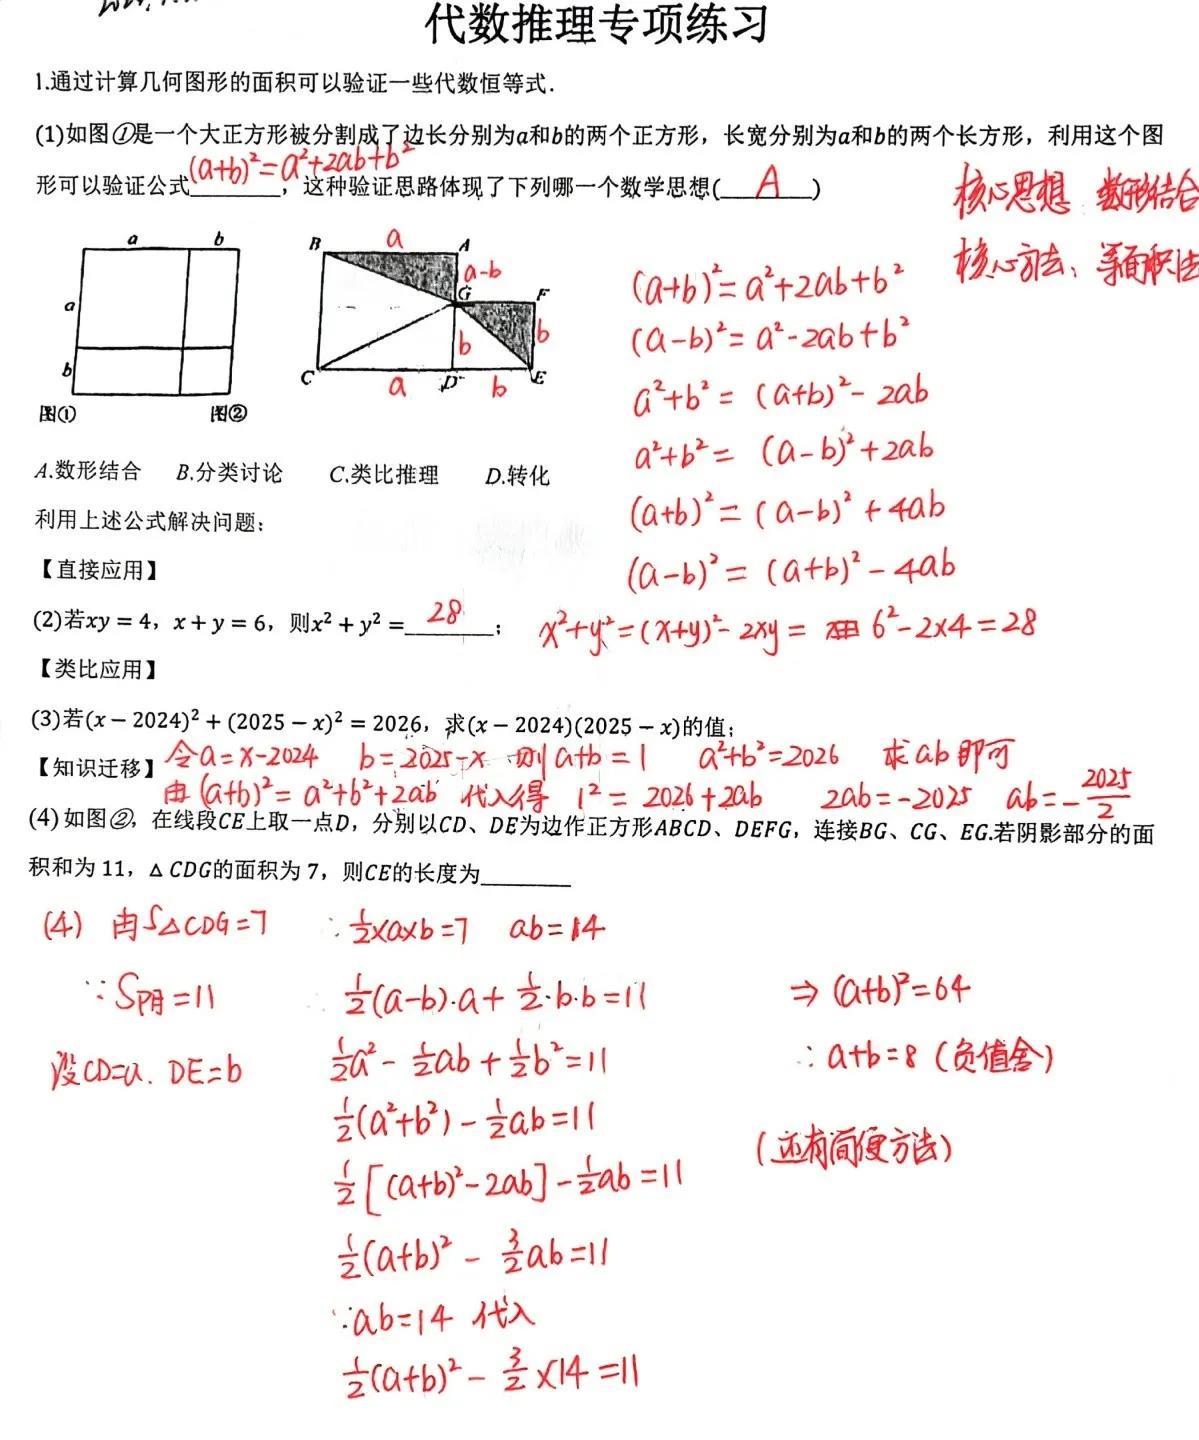 代数推理专项练习
1.通过计算几何图形的面积可以验证一些代数恒等式.
(1)如图①是一个大正方形被分割成了边长分别为a和b的两个正方形，长宽分别为a和b的两个长方形，利用这个图
形可以验证公式(a+b)²=a²+2ab+b²，这种验证思路体现了下列哪一个数学思想(A)
核心思想 数形结合
核心方法：等面积法
a b
a
b
图① 图②
B a A
a-b
G F
b b
C a D b E
(a+b)²=a²+2ab+b²
(a-b)²=a²-2ab+b²
a²+b²=(a+b)²-2ab
a²+b²=(a-b)²+2ab
(a+b)²=(a-b)²+4ab
(a-b)²=(a+b)²-4ab
A.数形结合 B.分类讨论 C.类比推理 D.转化
利用上述公式解决问题：
【直接应用】
(2)若xy=4，x+y=6，则x²+y²=28； x²+y²=(x+y)²-2xy= 6²-2×4=28
【类比应用】
(3)若(x-2024)²+(2025-x)²=2026，求(x-2024)(2025-x)的值；
令a=x-2024 b=2025-x 则a+b=1 a²+b²=2026 求ab即可
【知识迁移】
由(a+b)²=a²+b²+2ab 代入得 1²=2026+2ab 2ab=-2025 ab=-2025/2
(4)如图②，在线段CE上取一点D，分别以CD、DE为边作正方形ABCD、DEFG，连接BG、CG、EG.若阴影部分的面
积和为11，△CDG的面积为7，则CE的长度为________
(4) 由S△CDG=7 ∴½×a×b=7 ab=14
∵S阴=11 ∴½(a-b)·a+½·b·b=11 ⇒(a+b)²=64
设CD=a. DE=b ½a²-½ab+½b²=11 ∴a+b=8(负值舍)
½(a²+b²)-½ab=11
(还有简便方法)
½[(a+b)²-2ab]-½ab=11
½(a+b)²-3/2ab=11
∵ab=14 代入
½(a+b)²-3/2×14=11